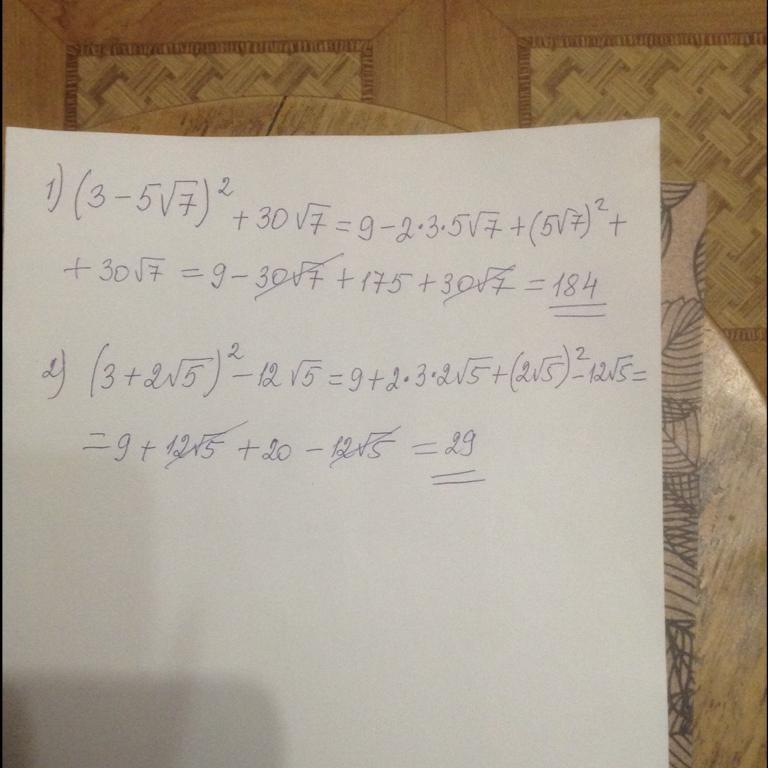 1) (3 - 5√7)² + 30√7 = 9 - 2·3·5√7 + (5√7)² +
+ 30√7 = 9 - 30√7 + 175 + 30√7 = 184
2) (3 + 2√5)² - 12√5 = 9 + 2·3·2√5 + (2√5)² - 12√5 =
= 9 + 12√5 + 20 - 12√5 = 29